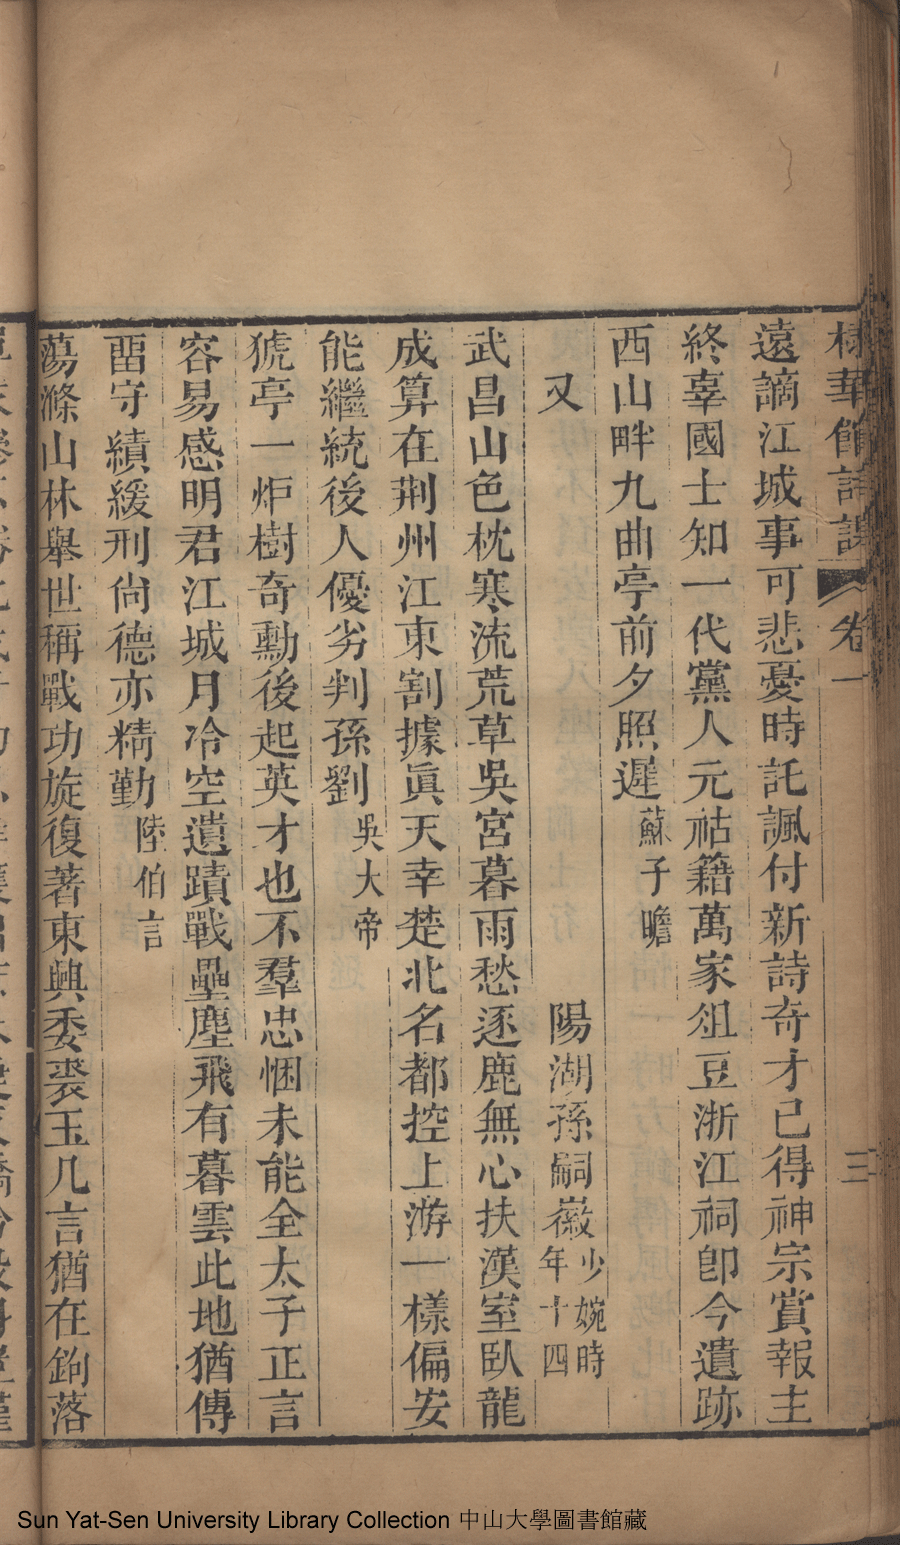 棣華館詩課 卷一 三
遠謫江城事可悲憂時託諷付新詩奇才已得神宗賞報主
終辜國士知一代黨人元祜籍萬家俎豆浙江祠卽今遺跡
西山畔九曲亭前夕照遲 蘇子瞻
又 陽湖孫嗣徽少婉時年十四
武昌山色枕寒流荒草吳宮暮雨愁逐鹿無心扶漢室臥龍
成算在荆州江東割據眞天幸楚北名都控上游一樣偏安
能繼統後人優劣判孫劉 吳大帝
猇亭一炬樹奇勳後起英才也不羣忠悃未能全太子正言
容易感明君江城月冷空遺蹟戰壘塵飛有暮雲此地猶傳
畱守績緩刑尙德亦精勤 陸伯言
蕩滌山林舉世稱戰功旋復著東興委裘玉几言猶在鉤落
Sun Yat-Sen University Library Collection 中山大學圖書館藏